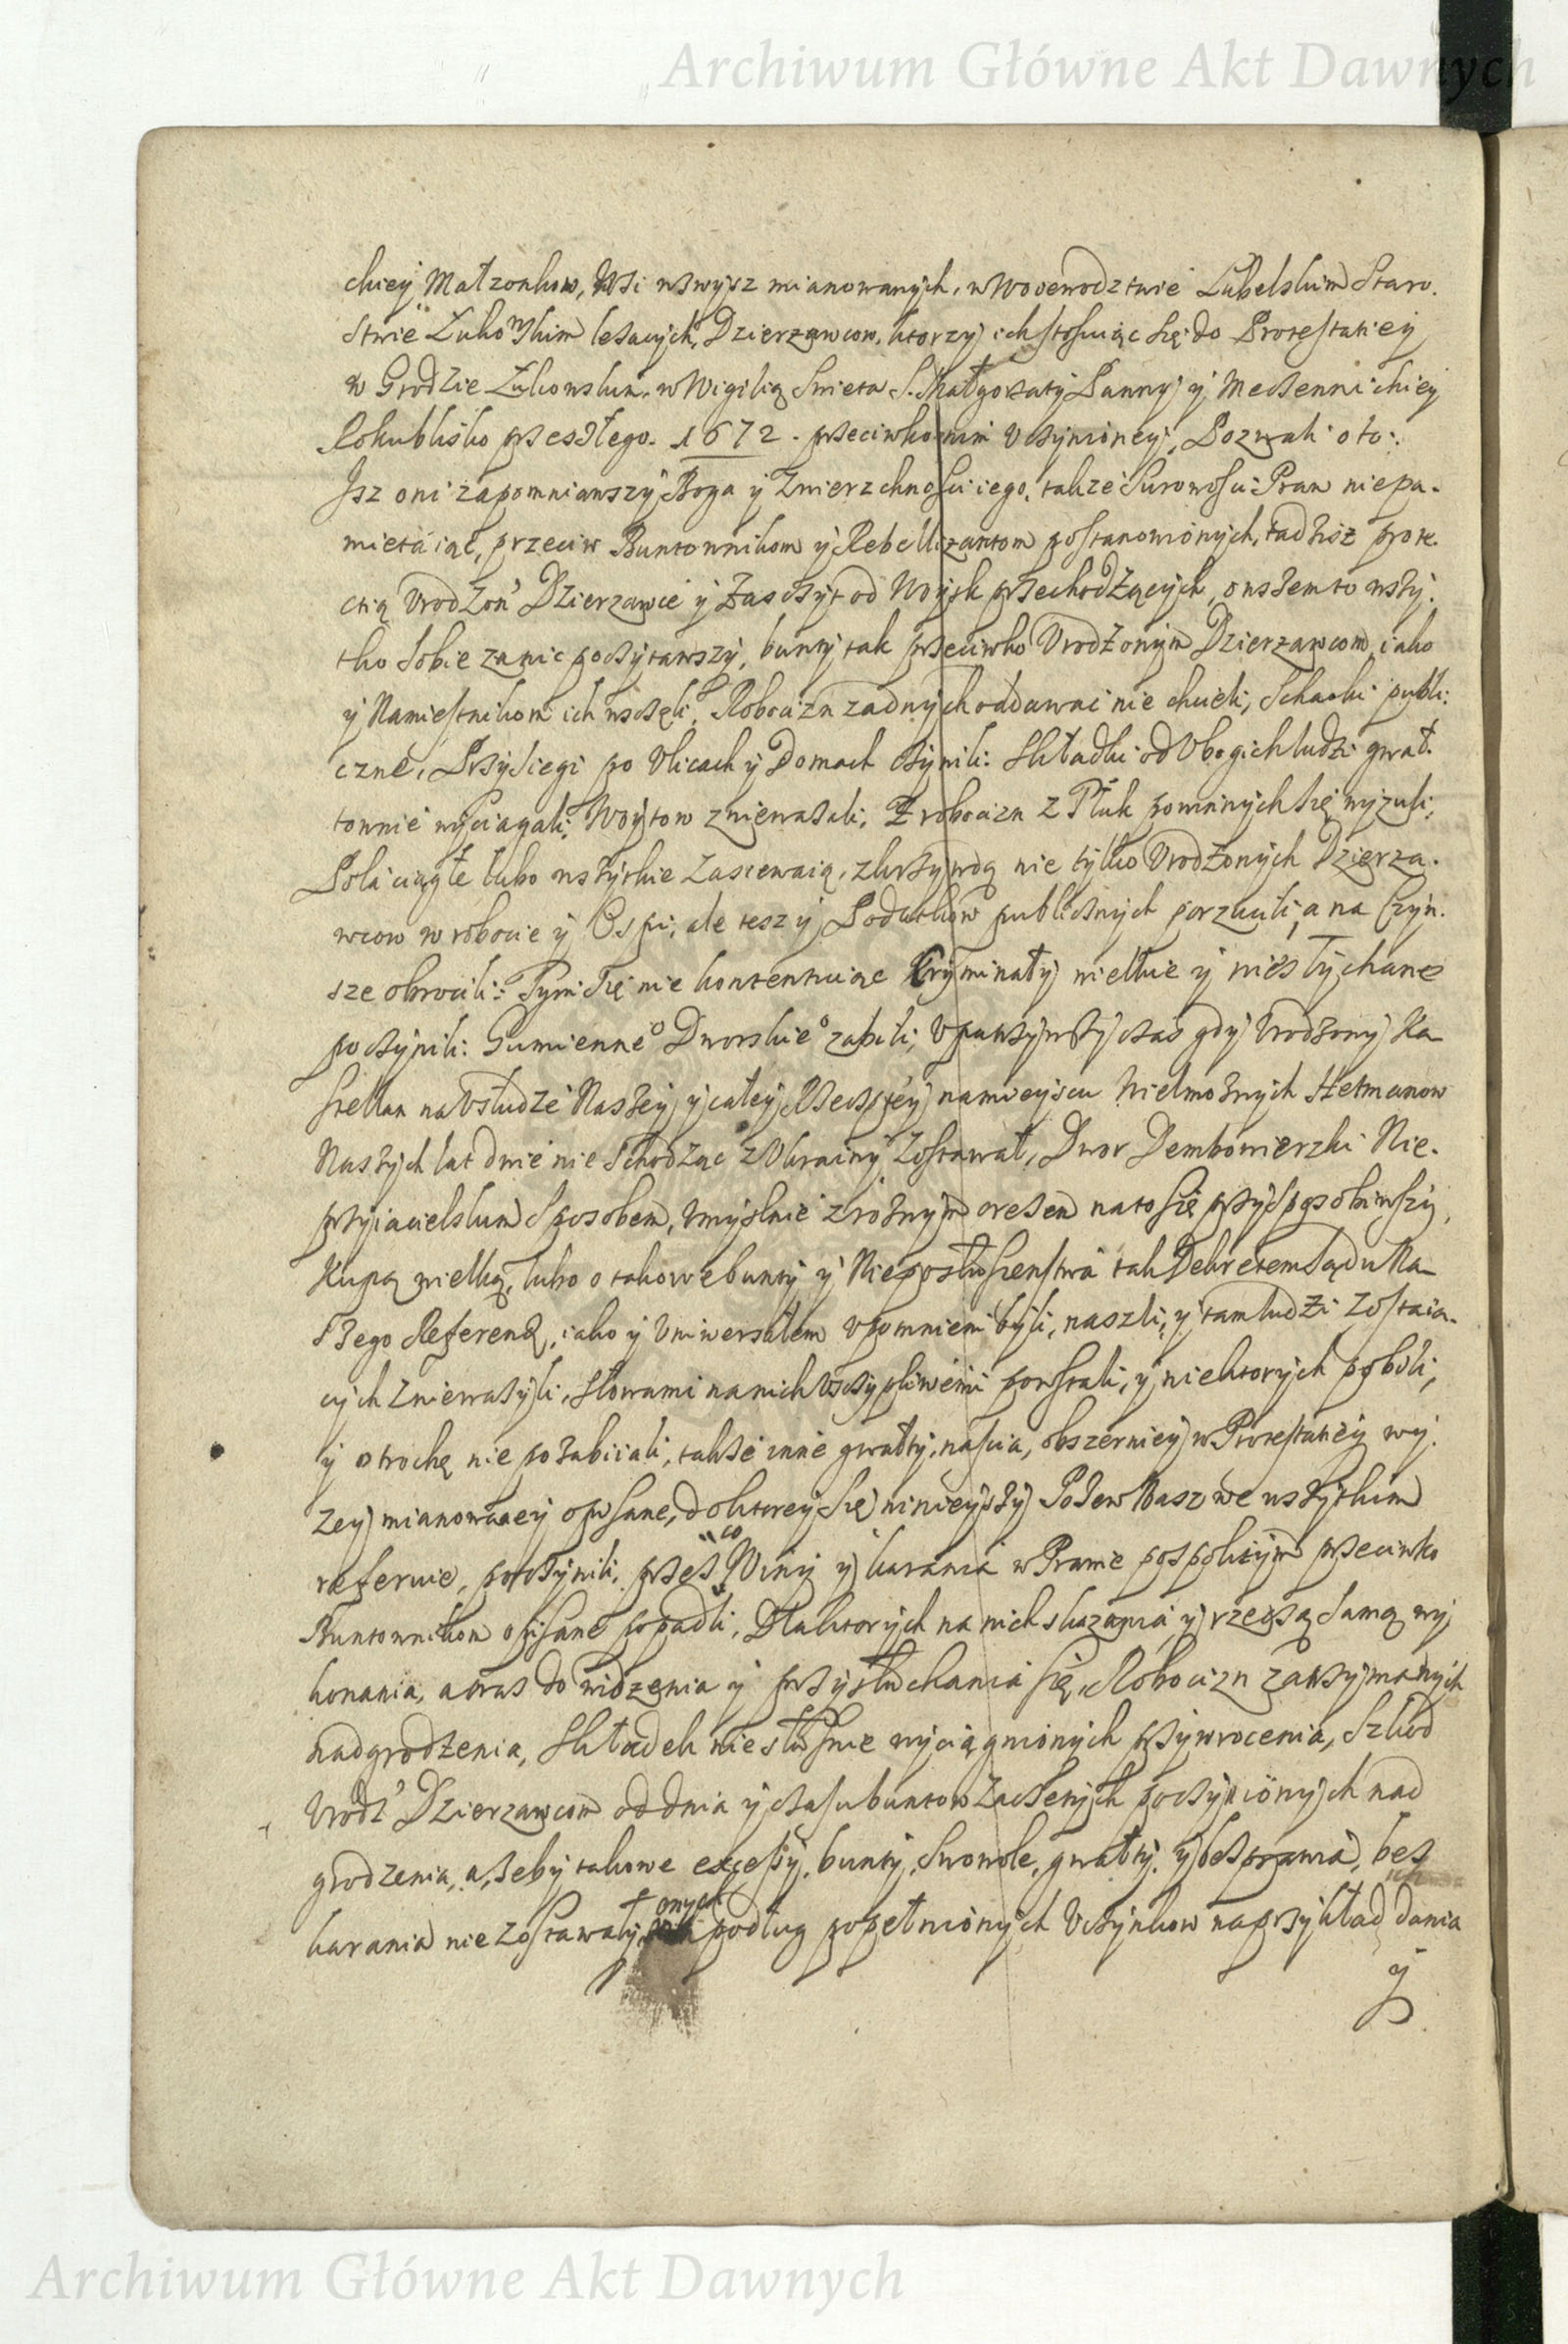 Archiwum Główne Akt Dawnych
chiey Małzonkow, Wsi wswysz mianowanych, w Woiewodztwie Lubelskim Staro.
stwie Łukowskim lezacych, Dzierzawcow, ktorzy ich stosuiąc się do Protestatiey
w Grodzie Łukowskim, w Wigilią Swieta S. Małgorzaty Panny y Meczennickiey
Rokublisko przeszłego. 1672. przeciwko nim Vczynioney, Pozwali oto:
Isz oni zapomniawszy Boga y Zwierzchnosci iego, takze Surowosci Praw niepa.
mietaiąc, przeciw Buntownikom y Rebellizantom postanowionych, tadzisz prote.
ctią Vrodzon Dzierzawce y Zasczyt od Woysk przechodzących, owszem to wszy.
tko sobie zanic poczytawszy, bunty tak przeciwko Vrodzonym Dzierzawcom, iako
y Namiestnikom ich wsczęli, Robocizn zadnych oddawac nie chcieli, Schacki publi:
czne, Przysiegi po Vlicach y Domach czynili: Składki od Vbogich ludzi gwał.
townie wyciagali, Woytow zniewazali, Z robocizn z Płuk powinnych się wyzuli,
Pola ciągłe lubo wszytkie zasiewaią, z krzywdą nie tylko Vrodzonych Dzierza.
wcow w robocie y Ospi, ale tesz y Podatkow publicznych porzucili, a na Czyn.
sze obrocili: Tym się nie kontentuiąc kryminały wielkie y niesłychane
poczynili: Gumienne⁰ Dworskie⁰ zabili, Vpatrzywszy czas gdy Vrodzony Ka
sztellan na Vsłudze Naszey y całey Rzeczptey na mieyscu Wielmoznych Hetmanow
Naszych lat dwie nie schodząc z Vkrainy Zostawał, Dwor Dembowierzki Nie.
przyiacielskim sposobem, Vmyslnie z roznym orezem na to się przysposobiwszy,
Kupą wielką, lubo o takowe bunty y Nieposłuszenstwa tak Dekretem Sądu Na
szego Referend, iako y Vniwersałem vpomnieni byli, naszli, y tam ludzi zostaią.
cych zniewazyli, słowami na nich Vsczypliwemi powstali, y niektorych pobili,
y o trochę nie pozabiiali, takze inne gwałty, nascia, obszerniey w Protestatiey wy.
zey mianowaney opisane, do ktorey się ninieyszy Pozew Nasz we wszytkim
referuie, poczynili, przes co Winy y karania w Prawie pospolitym przeciwko
Buntownikom opisane popadli, Dla ktorych na nich skazania y rzeczą samą wy
konania, a oraz do widzenia y przysłuchania się, Robocizn zatrzymanych
nadgrodzenia, Składek niesłusznie wyciągnionych przywrocenia, szkod
Vrodz Dzierzawcom od dnia y czasu buntow zaczetych poczynionych nad
grodzenia, a zeby takowe excessy, bunty, swowole, gwałty, y bezprawia, bez
karania nie zostawały, onych podług popełnionych Vczynkow na przykład dania
y
Archiwum Główne Akt Dawnych